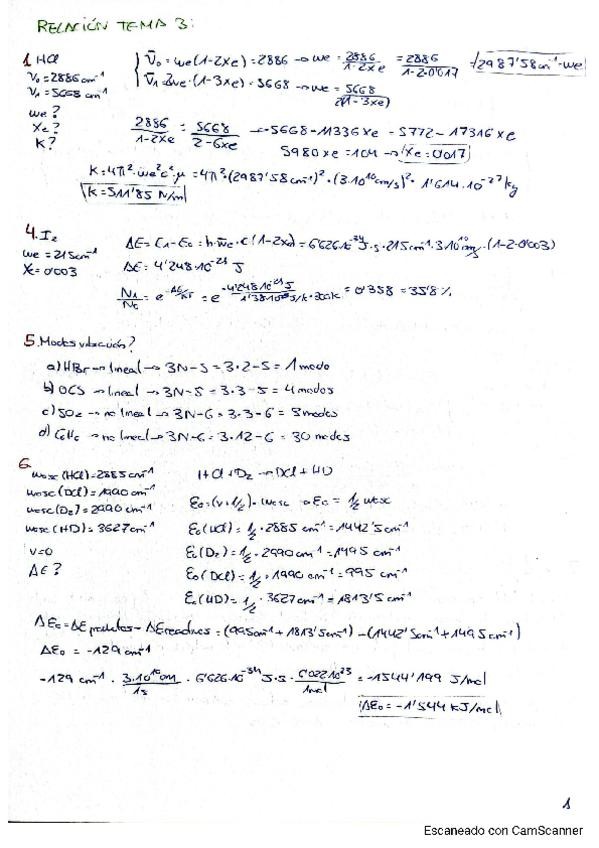 RELACIÓN TEMA 3:
1. HCl
ν₀ = 2886 cm⁻¹
ν₁ = 5668 cm⁻¹
we?
Xe?
K?
ν̄₀ = we(1-2xe) = 2886 → we = 2886/1-2xe = 2886/1-2·0'017 = 2987'58 cm⁻¹ = we
ν̄₁ = 2we·(1-3xe) = 5668 → we = 5668/2(1-3xe)
2886/1-2xe = 5668/2-6xe → 5668-11336xe = 5772-17316xe
5980xe = 104 → xe = 0'017
K = 4π²·w̄e²c²·μ = 4π²·(2987'58cm⁻¹)²·(3·10¹⁰cm/s)²·1'614·10⁻²⁷kg
K = 511'85 N/m
4. I₂
we = 215cm⁻¹
Xe = 0'003
ΔE = E₁-E₀ = h·w̄e·c(1-2xe) = 6'626·10⁻³⁴J·s·215cm⁻¹·3·10¹⁰cm/s·(1-2·0'003)
ΔE = 4'248·10⁻²¹ J
N₁/N₀ = e^-ΔE/KT = e^-4'248·10⁻²¹J/1'38·10⁻²³J/K·300K = 0'358 = 35'8 %
5. Modos vibración?
a) HBr → lineal → 3N-5 = 3·2-5 = 1 modo
b) OCS → lineal → 3N-5 = 3·3-5 = 4 modos
c) SO₂ → no lineal → 3N-6 = 3·3-6 = 3 modos
d) C₆H₆ → no lineal → 3N-6 = 3·12-6 = 30 modos
6.
wosc (HCl) = 2885 cm⁻¹
wosc (DCl) = 1990 cm⁻¹
wosc (D₂) = 2990 cm⁻¹
wosc (HD) = 3627 cm⁻¹
v=0
ΔE?
HCl + D₂ → DCl + HD
E₀ = (v+1/2)·wosc → E₀ = 1/2 wosc
E₀(HCl) = 1/2·2885 cm⁻¹ = 1442'5 cm⁻¹
E₀(D₂) = 1/2·2990 cm⁻¹ = 1495 cm⁻¹
E₀(DCl) = 1/2·1990 cm⁻¹ = 995 cm⁻¹
E₀(HD) = 1/2·3627 cm⁻¹ = 1813'5 cm⁻¹
ΔE₀ = ΔEproductos - ΔEreactivos = (995cm⁻¹ + 1813'5cm⁻¹) - (1442'5cm⁻¹ + 1495cm⁻¹)
ΔE₀ = -129 cm⁻¹
-129 cm⁻¹ · 3·10¹⁰cm/1s · 6'626·10⁻³⁴ J·s · 6'022·10²³/1mol = -1544'199 J/mol
ΔE₀ = -1'544 KJ/mol
1
Escaneado con CamScanner